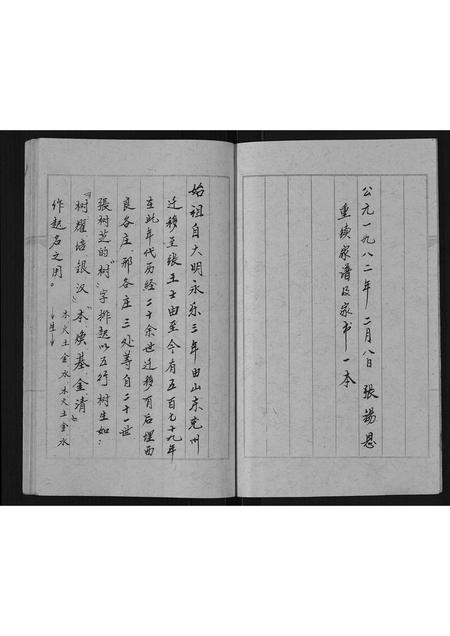 公元一九八二年 二月八日 张锡恩
重续家谱及家书一本
始祖自大明永乐三年由山东兖州
迁移至张王士由至今有五百七十九年
在此年代历经二十余世迁移有后埋西
良各庄、邢各庄三处等自二十一世
張树芝的“树”字排起以五行树生如：
“树耀培银汉”“本焕基金清”
作起名之用。
木火土金水木火土金水